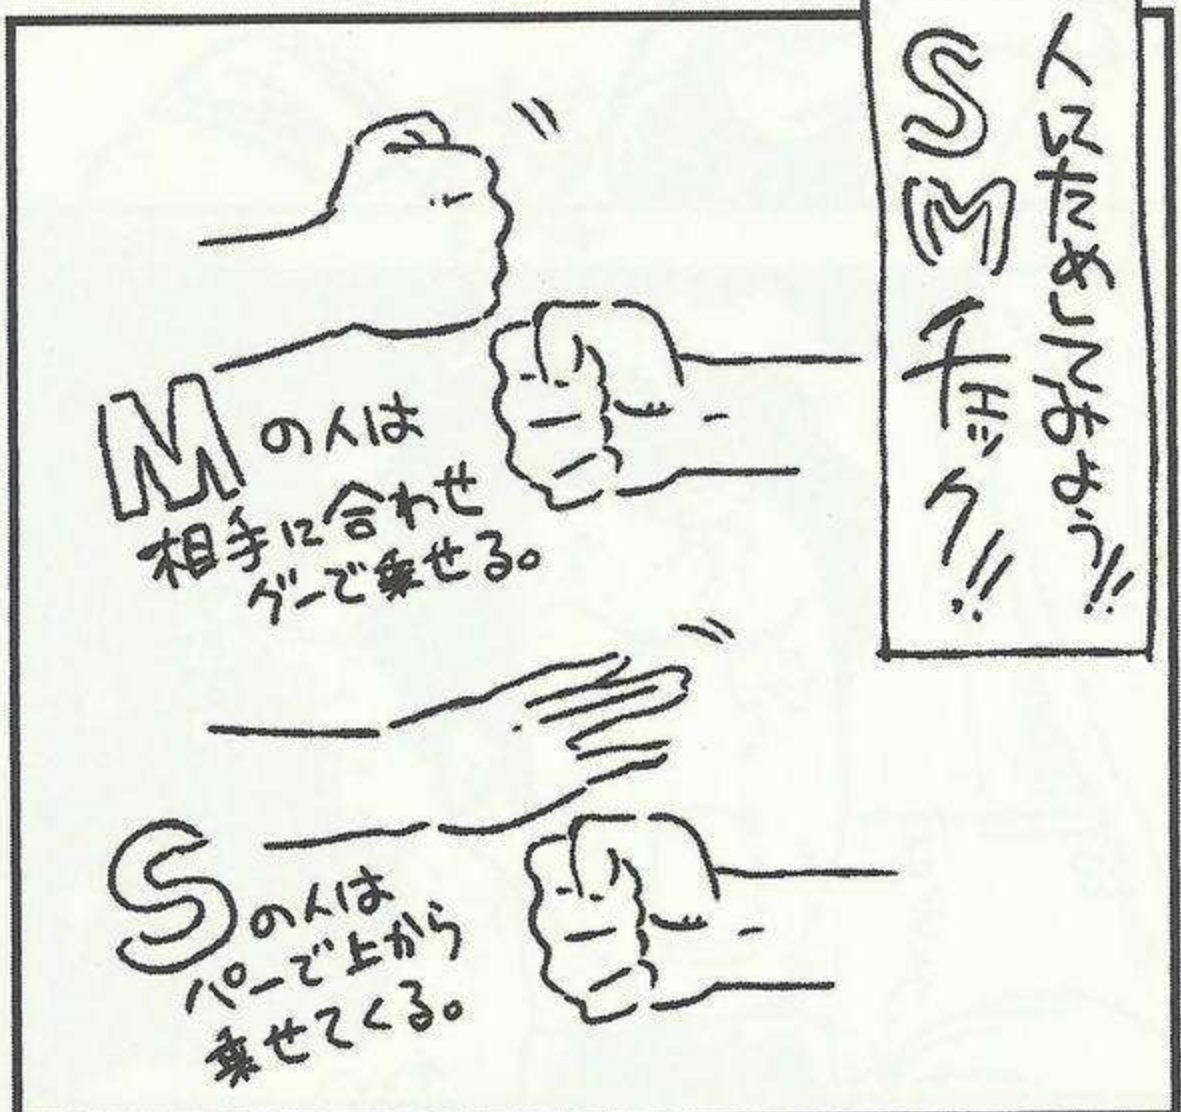 人にためしてみよう!!
SMチェック!!
Mの人は
相手に合わせ
グーで乗せる。
Sの人は
パーで上から
乗せてくる。